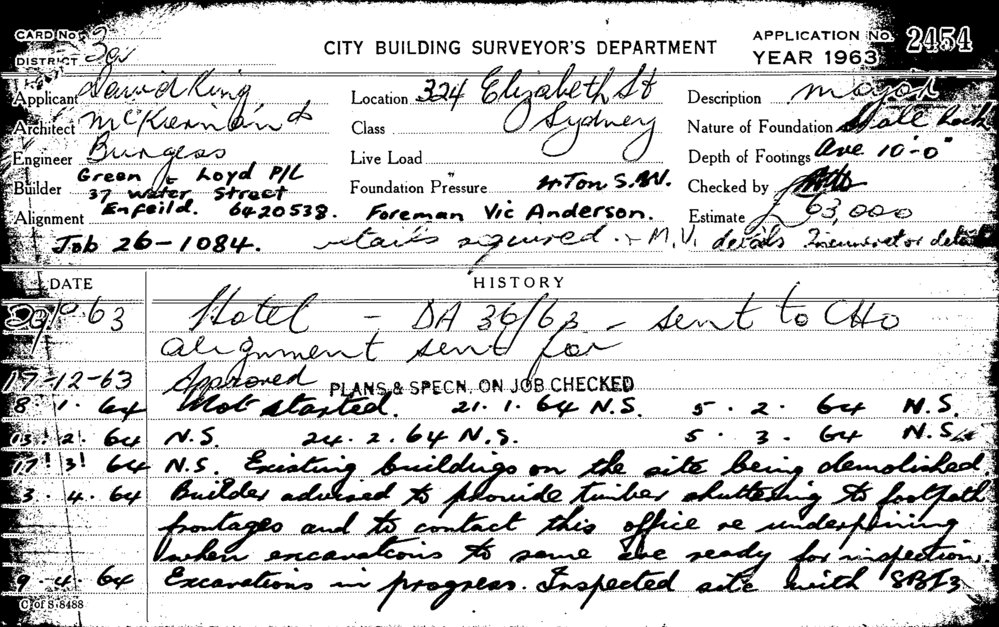 CARD No.
DISTRICT 3a
CITY BUILDING SURVEYOR'S DEPARTMENT
APPLICATION No. 2454
YEAR 1963
Applicant David King
Location 324 Elizabeth St
Description major
Architect McKiernan &
Class Sydney
Nature of Foundation Rock
Engineer Burgess
Live Load
Depth of Footings Ave 10'-0"
Builder Green & Loyd P/L
37 Water Street
Foundation Pressure 4 Ton S.W.
Checked by
Alignment Enfeild. 6420538. Foreman Vic Anderson.
Estimate £63,000
Job 26-1084. required. M.V. details
DATE HISTORY
63 Hotel - DA 36/63 - sent to CHO
alignment sent for
17-12-63 Approved PLANS & SPECN. ON JOB CHECKED
8. 1. 64 Not started. 21. 1. 64 N.S. 5. 2. 64 N.S.
13. 2. 64 N.S. 24. 2. 64 N.S. 5. 3. 64 N.S.
17. 3. 64 N.S. Existing buildings on the site being demolished.
3. 4. 64 Builder advised to provide timber shuttering to footpath
frontages and to contact this office re underpinning
when excavations to same are ready for inspection.
9. 4. 64 Excavations in progress. Inspected site with SBI3
C. of S. 8488